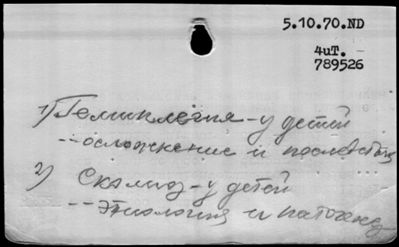 5.10.70.ND
4uT.
789526
1) Гемиплегия - у детей
-- осложнение и последствия
2) Сколиоз - у детей
-- этиология и патоген